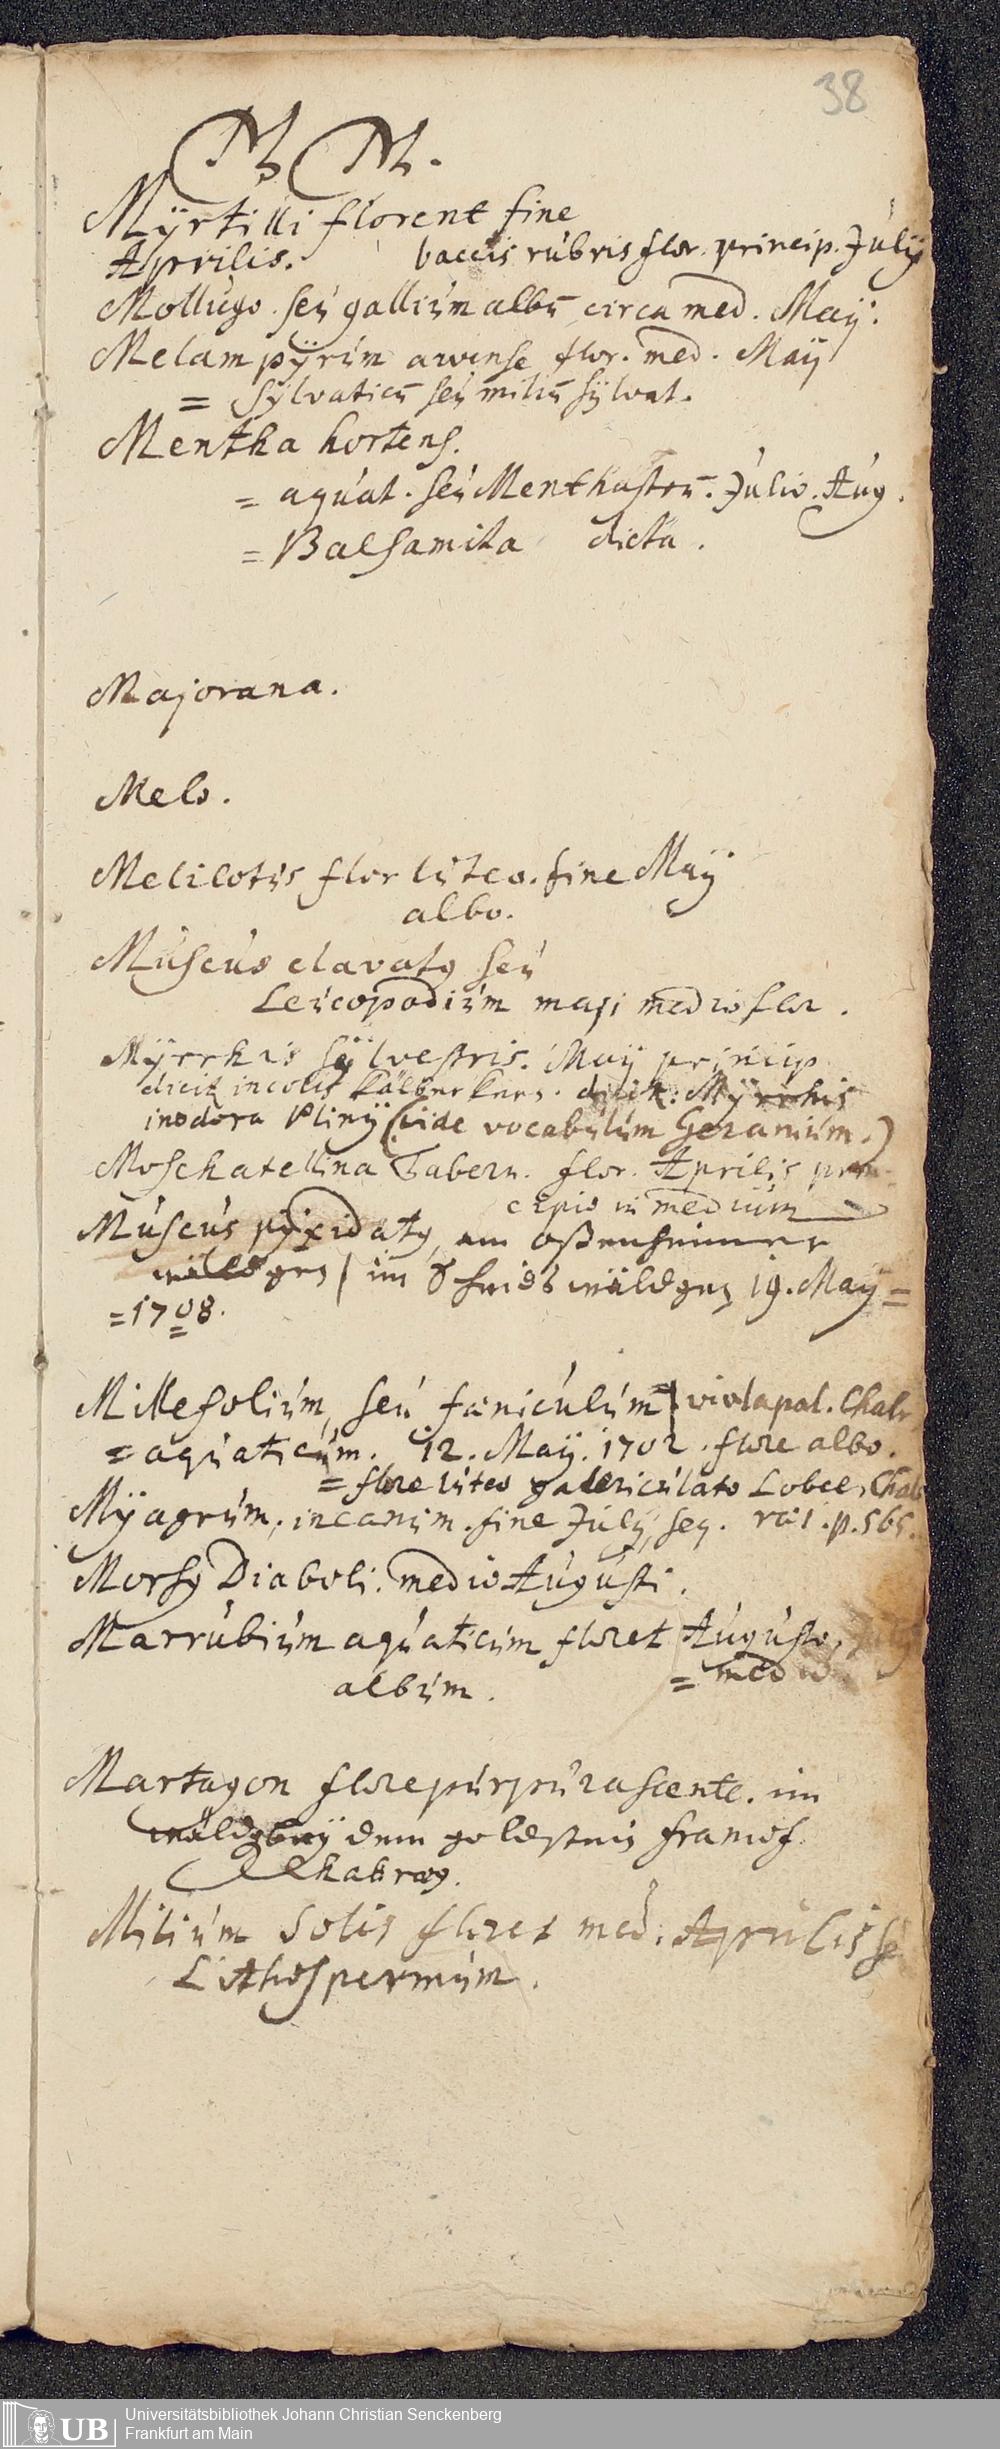 38
M M.
Myrtilli florent fine
Aprilis. baccis rubris flor. princip. Julij
Mollugo seu gallium albū circa med. Maÿ.
Melampÿrum arvense flor. med. Maÿ
= Sÿlvaticū seu miliū sÿlvat.
Mentha hortens.
= aquat. seu Menthastrū. Julio. Aug.
= Balsamita dicta.
Majorana.
Melo.
Melilotus flor luteo. fine Maÿ
albo.
Muscus clavatg seu
Leucopodium maji medio flor.
Mÿrrhis sÿlvestris. Maÿ princip
incolis kälberkern. Mÿrrhis
inodora Plinÿ (vide vocabulum Geranium.)
Moschatellina Tabern. flor. Aprilis prin-
cipio in medium
Muscus pÿxidatg, am
wäldgen / im wäldgen 19. Maÿ =
= 1708.
Millefolium, seu fæniculum = viola pal. Chabr
= aquaticum. 12. Maÿ. 1702. flore albo.
= flore luteo galericulato Lobel, Chab
Mÿagrum, incanum. fine Julÿ, seq. rai. p. 565.
Morsg Diaboli. medio Augusti.
Marrubium aquaticum floret Augusto,
album. = medio
Martagon flore purpurascente. im
wäldg beÿ dem goldstein
Chabræg.
Milium Solis floret med. Aprilis
Lithospermum.
Universitätsbibliothek Johann Christian Senckenberg
Frankfurt am Main
UB